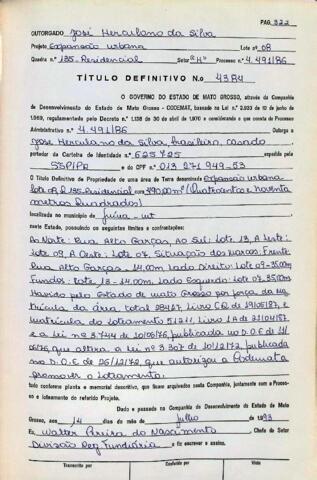 PAG 322
OUTORGADO José Herculano da Silva
Projeto Expansão urbana Lote nº 08
Quadra n.º 135-Residencial Setor "H" Processo n.º 4.491/86
TÍTULO DEFINITIVO N.º 4384
O GOVERNO DO ESTADO DE MATO GROSSO, através da Companhia
de Desenvolvimento do Estado de Mato Grosso - CODEMAT, baseado na Lei n.º 2.933 de 10 de junho de
1969, regulamentado pelo Decreto n.º 1.138 de 30 de abril de 1970 e considerando o que consta do Processo
Administrativo n.º 4.491/86 Outorga a
José Herculano da Silva, brasileiro, casado
portador da Carteira de Identidade n.º 625725 expedida pela
SSP/PR e do CPF n.º 013 271 949-53
O Título Definitivo de Propriedade de uma área de Terra denominada Expansão urbana
Lote 08, Q. 135-Residencial com 490,00 m² (Quatrocentos e noventa
metros Quadrados)
localizada no município de Juína - MT
neste Estado, possuindo os seguintes limites e confrontações:
Ao Norte: Rua Alto Garças, Ao Sul: Lote 13, A Leste:
Lote 09, A Oeste: Lote 07. Situação dos Marcos: Frente
Rua Alto Garças - 14,00m. Lado Direito: Lote 09-35,00m
Fundos: Lote 13 - 14,00m. Lado Esquerdo: Lote 07-35,00m
Havido pelo Estado de mato Grosso por força da ma
trícula da área total 28467, Livro CR de 19/05/87, e
matrícula do Loteamento 51211, Livro 1A de 27/04/87
e a Lei nº 3744 de 10/06/76, publicada no D.O.E de 11/
06/76, que altera a Lei nº 3.307 de 10/12/72, publicada
no D.O.E de 26/12/72, que autorizou a Codemat a
promover o Loteamento.
tudo conforme planta e memorial descritivo, que ficam arquivados nesta Companhia, juntamente com o Proces-
so e loteamento do referido Projeto.
Dado e passado na Companhia de Desenvolvimento do Estado de Mato
Grosso, aos 14 dias do mês de julho de 1993
Eu, Walter Pereira do Nascimento Chefe do Setor
Divisão Reg. Fundiária a fiz escrever e assino.
Transcrito por
Conferido por
Visto